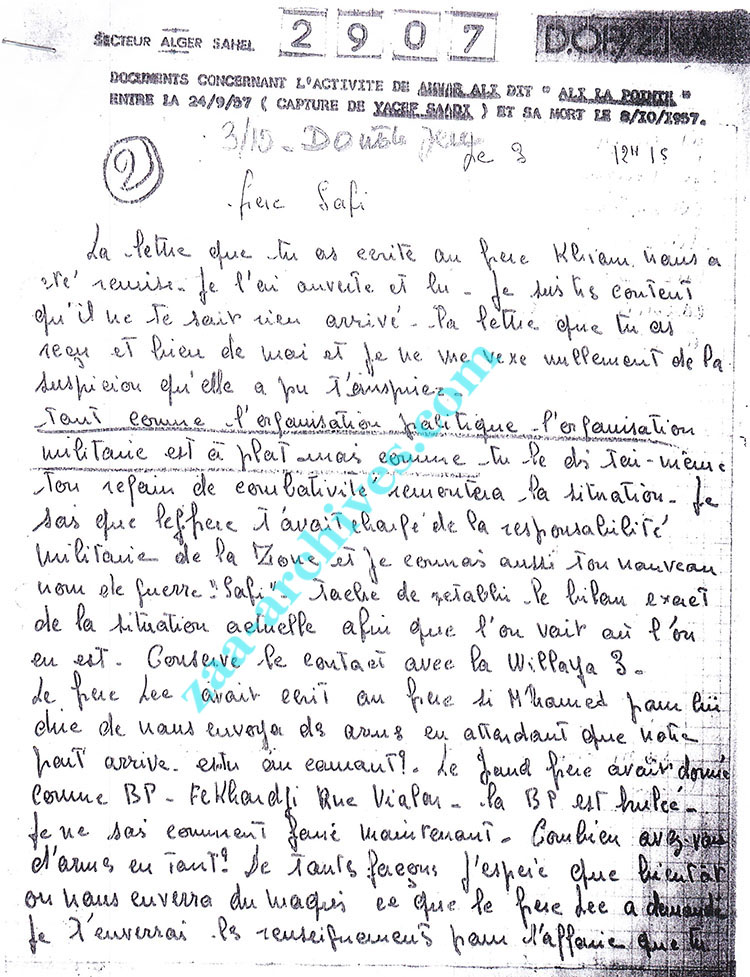 SECTEUR ALGER SAHEL 2907
DOCUMENTS CONCERNANT L'ACTIVITE DE AMMAR ALI DIT " ALI LA POINTE "
ENTRE LA 24/9/57 ( CAPTURE DE YACEF SAADI ) ET SA MORT LE 8/10/1957.
3/10 - Double
2 le 3 12H15
frere Safi
La lettre que tu as ecrite au frere Khiam nous a
été remise. Je l'ai ouverte et lu - Je suis tres content
qu'il ne te soit rien arrivé - la lettre que tu as
reçu et bien de moi et je ne me vexe nullement de la
suspicion qu'elle a pu t'inspirer -
tout comme l'organisation politique l'organisation
militaire est à plat mais comme tu le dis toi-même
ton regain de combativité remontera la situation. Je
sais que le frere t'avait chargé de la responsabilité
militaire de la Zone et je connais aussi ton nouveau
nom de guerre "Safi" - tache de retabli le bilan exact
de la situation actuelle afin que l'on voit où l'on
en est - Conserve le contact avec la Willaya 3 -
Le frere Lee avait ecrit au frere si M'hamed pour lui
dire de nous envoyer des armes en attendant que notre
part arrive - es tu au courant? - Le Grand frere avait donné
comme BP - Fekhardji Rue Vialar - la BP est brulée -
Je ne sais comment faire maintenant - Combien avez vous
d'armes en tout? De toute façons j'espere que bientôt
on nous enverra du maquis ce que le frere Lee a demandé
Je t'enverrai les renseignements pour l'affaire que tu
zaa-archives.com